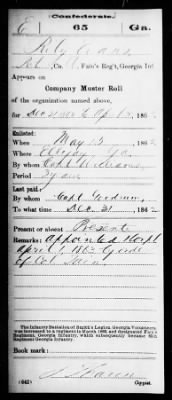 Confederate.
E 65 Ga.
Riley Evans
Co. Fain's Reg't, Georgia Inf
Appears on
Company Muster Roll
of the organization named above,
for Dec 31 1862 to Apl 30, 186
Enlisted:
When May 15, 1862
Where Ellijay Ga.
By whom Capt
Period 3 years
Last paid:
By whom Capt Goodrum
To what time Dec. 31, 1862
Present or absent Present
Remarks: appointed 4 Corpl
1, 1863
The Infantry Battalion of Smith's Legion, Georgia Volunteers,
was increased to a regiment in March 1863 and designated Fain's
Regiment, Georgia Infantry, which subsequently became 65th
Regiment Georgia Infantry.
Book mark:
(642) Copyist.